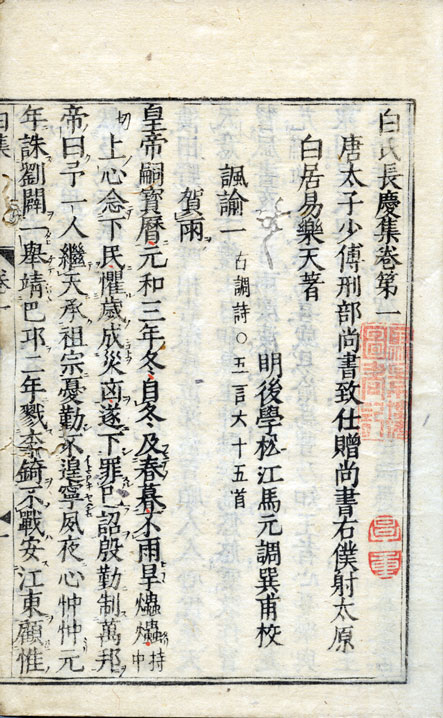 白氏長慶集卷第一
唐太子少傅刑部尚書致仕贈尚書右僕射太原
白居易樂天著
明後學松江馬元調巽甫校
諷諭一 古調詩○五言六十五首
賀雨
皇帝嗣寶曆元和三年冬自冬及春暮不雨旱爞爞持中
切上心念下民懼歲成災凶遂下罪巳詔殷勤制萬邦
帝曰予一人繼天承祖宗憂勤不遑寧夙夜心忡忡元
年誅劉闢一舉靖巴邛二年戮李錡不戰安江東顧惟
白集 卷一